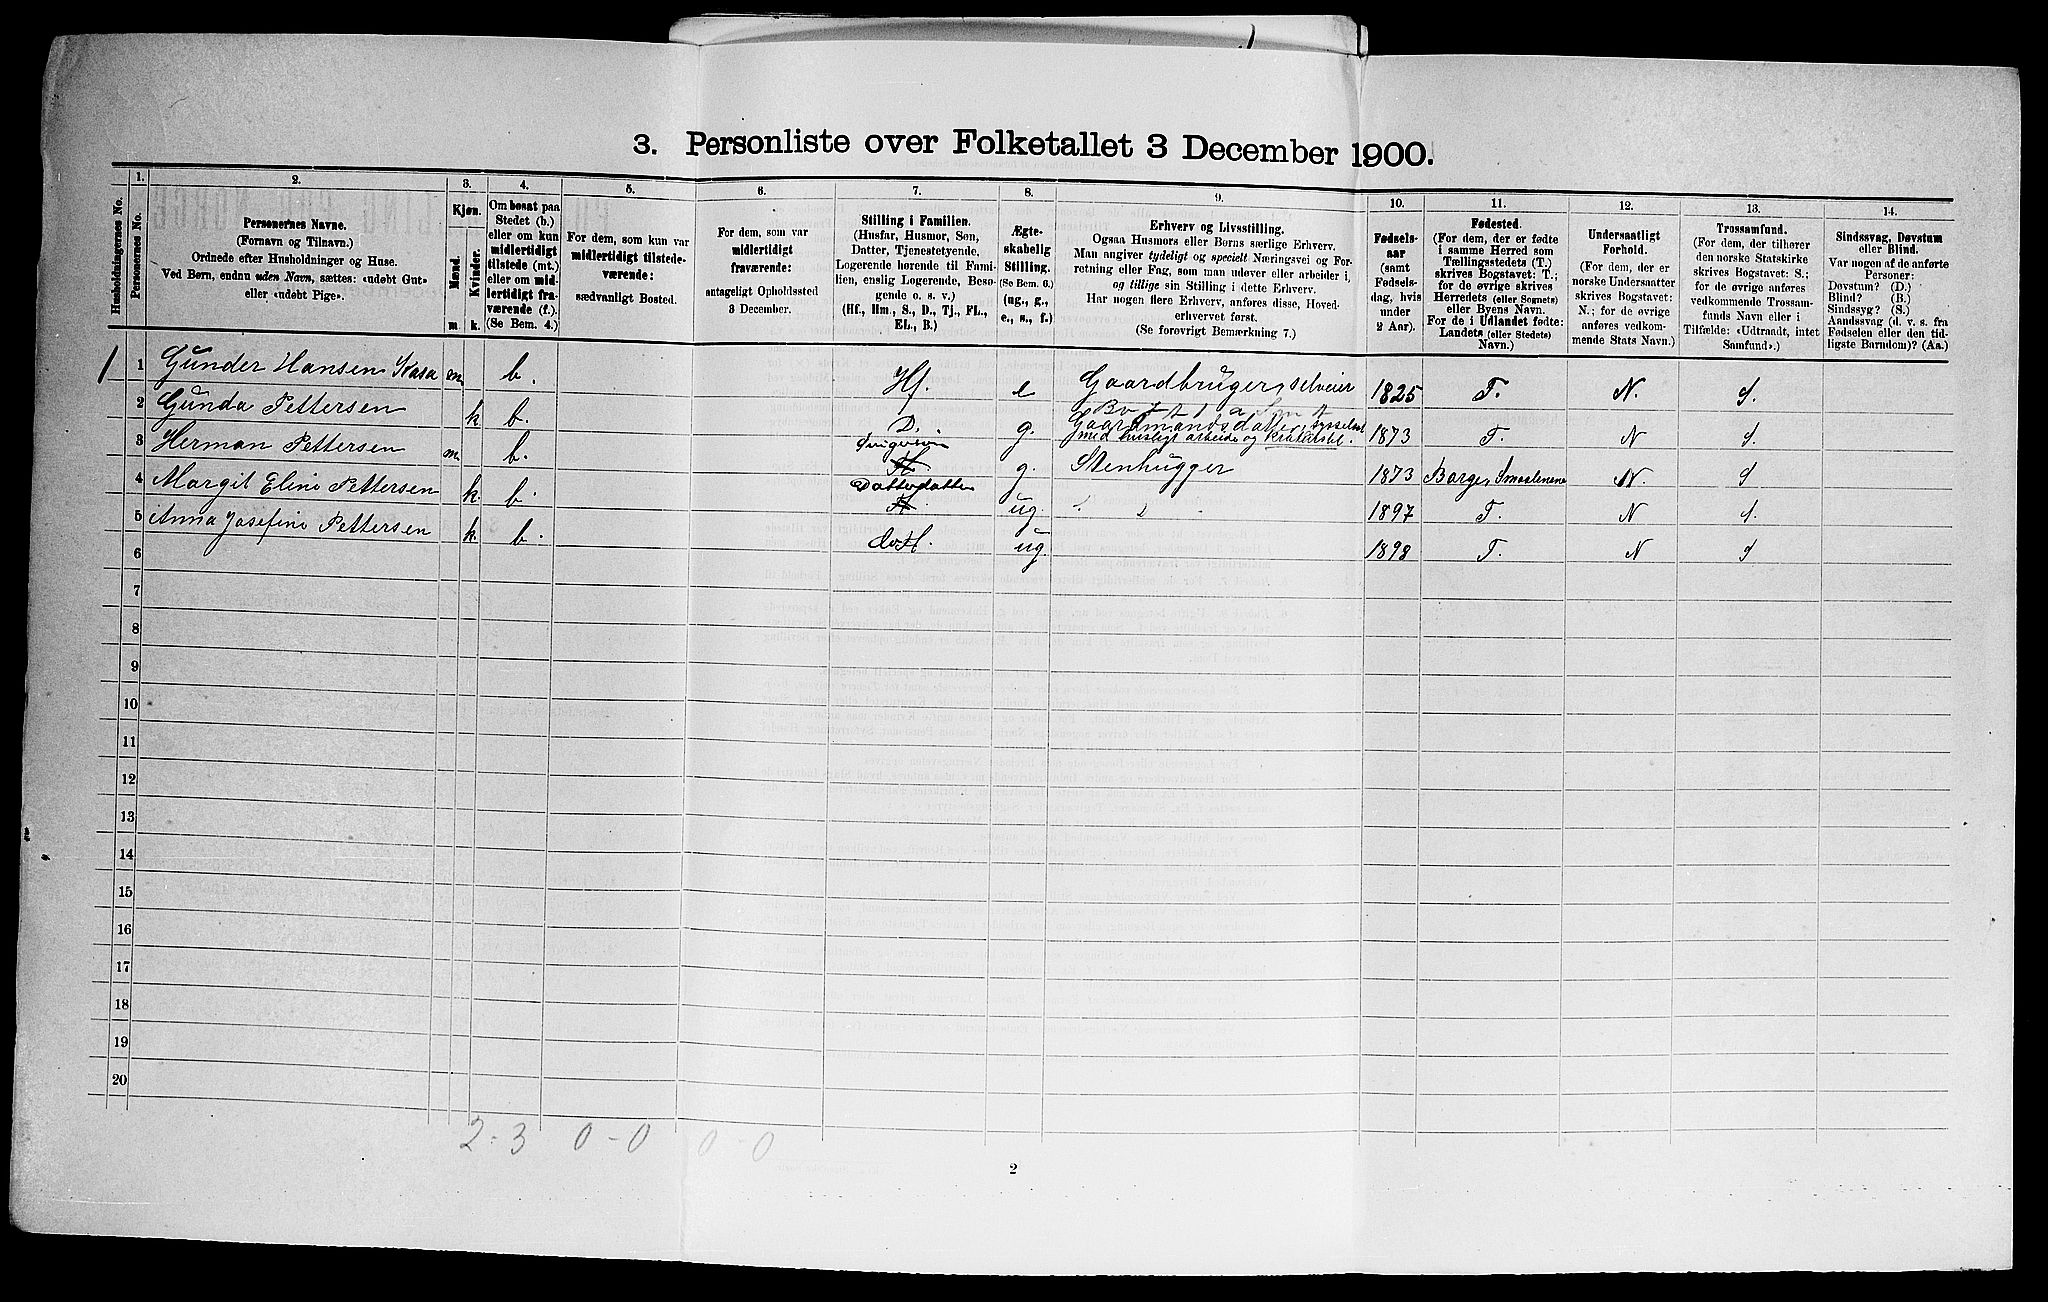 3. Personliste over Folketallet 3 December 1900.
Husholdningernes No.
1.
Personernes No.
2.
Personernes Navne.
(Fornavn og Tilnavn.)
Ordnede efter Husholdninger og Huse.
Ved Børn, endnu uden Navn, sættes: «udøbt Gut»
eller «udøbt Pige».
3.
Kjøn.
Mænd.
Kvinder.
m.
k.
4.
Om bosat paa
Stedet (b.)
eller om kun
midlertidigt
tilstede (mt.)
eller om mid-
lertidigt fra-
værende (f.).
(Se Bem. 4.)
5.
For dem, som kun var
midlertidigt tilstede-
værende:
sædvanligt Bosted.
6.
For dem, som var
midlertidigt
fraværende:
antageligt Opholdssted
3 December.
7.
Stilling i Familien.
(Husfar, Husmor, Søn,
Datter, Tjenestetyende,
Logerende hørende til Fami-
lien, enslig Logerende, Besø-
gende o. s. v.)
(Hf., Hm., S., D., Tj., FL.,
EL., B.)
8.
Ægte-
skabelig
Stilling.
(Se Bem. 6.)
(ug., g.,
e., s., f.)
9.
Erhverv og Livsstilling.
Ogsaa Husmors eller Børns særlige Erhverv.
Man angiver tydeligt og specielt Næringsvei og For-
retning eller Fag, som man udøver eller arbeider i,
og tillige sin Stilling i dette Erhverv.
Har nogen flere Erhverv, anføres disse, Hoved-
erhvervet først.
(Se forøvrigt Bemærkning 7.)
10.
Fødsels-
aar
(samt
Fødsels-
dag, hvis
under
2 Aar).
11.
Fødested.
(For dem, der er fødte
i samme Herred som
Tællingsstedets (T.)
skrives Bogstavet: T.;
for de øvrige skrives
Herredets (eller Sognets)
eller Byens Navn.
For de i Udlandet fødte:
Landets (eller Stedets)
Navn.)
12.
Undersaatligt
Forhold.
(For dem, der er
norske Undersaatter
skrives Bogstavet:
N.; for de øvrige
anføres vedkom-
mende Stats Navn.)
13.
Trossamfund.
(For dem, der tilhører
den norske Statskirke
skrives Bogstavet: S.;
for de øvrige anføres
vedkommende Trossam-
funds Navn eller i
Tilfælde: «Udtraadt, intet
Samfund».)
14.
Sindssvag, Døvstum
eller Blind.
Var nogen af de anførte
Personer:
Døvstum? (D.)
Blind? (B.)
Sindssyg? (S.)
Aandssvag (d. v. s. fra
Fødselen eller den tid-
ligste Barndom)? (Aa.)
1 1 Gunder Hansen m. b. Hf. e Gaardbruger, selveier 1825 T. N. S.
2 Gunda Pettersen k b. D. g. Gaardmandsdatter, sysselsat
med husligt arbeide og kreaturstel. 1873 T. N S.
3 Herman Pettersen m. b. Svigersøn g. Stenhugger 1873 Borge, Smaalenene N. S
4 Margit Elini Pettersen k. b. Datterdatter ug. 1897 T. N S.
5 Anna Josefine Pettersen k. b. do ug. 1898 T. N S
6
7
8
9
10
11
12
13
14
15
16
17
18
19
20
2-3 0-0 0-0
2